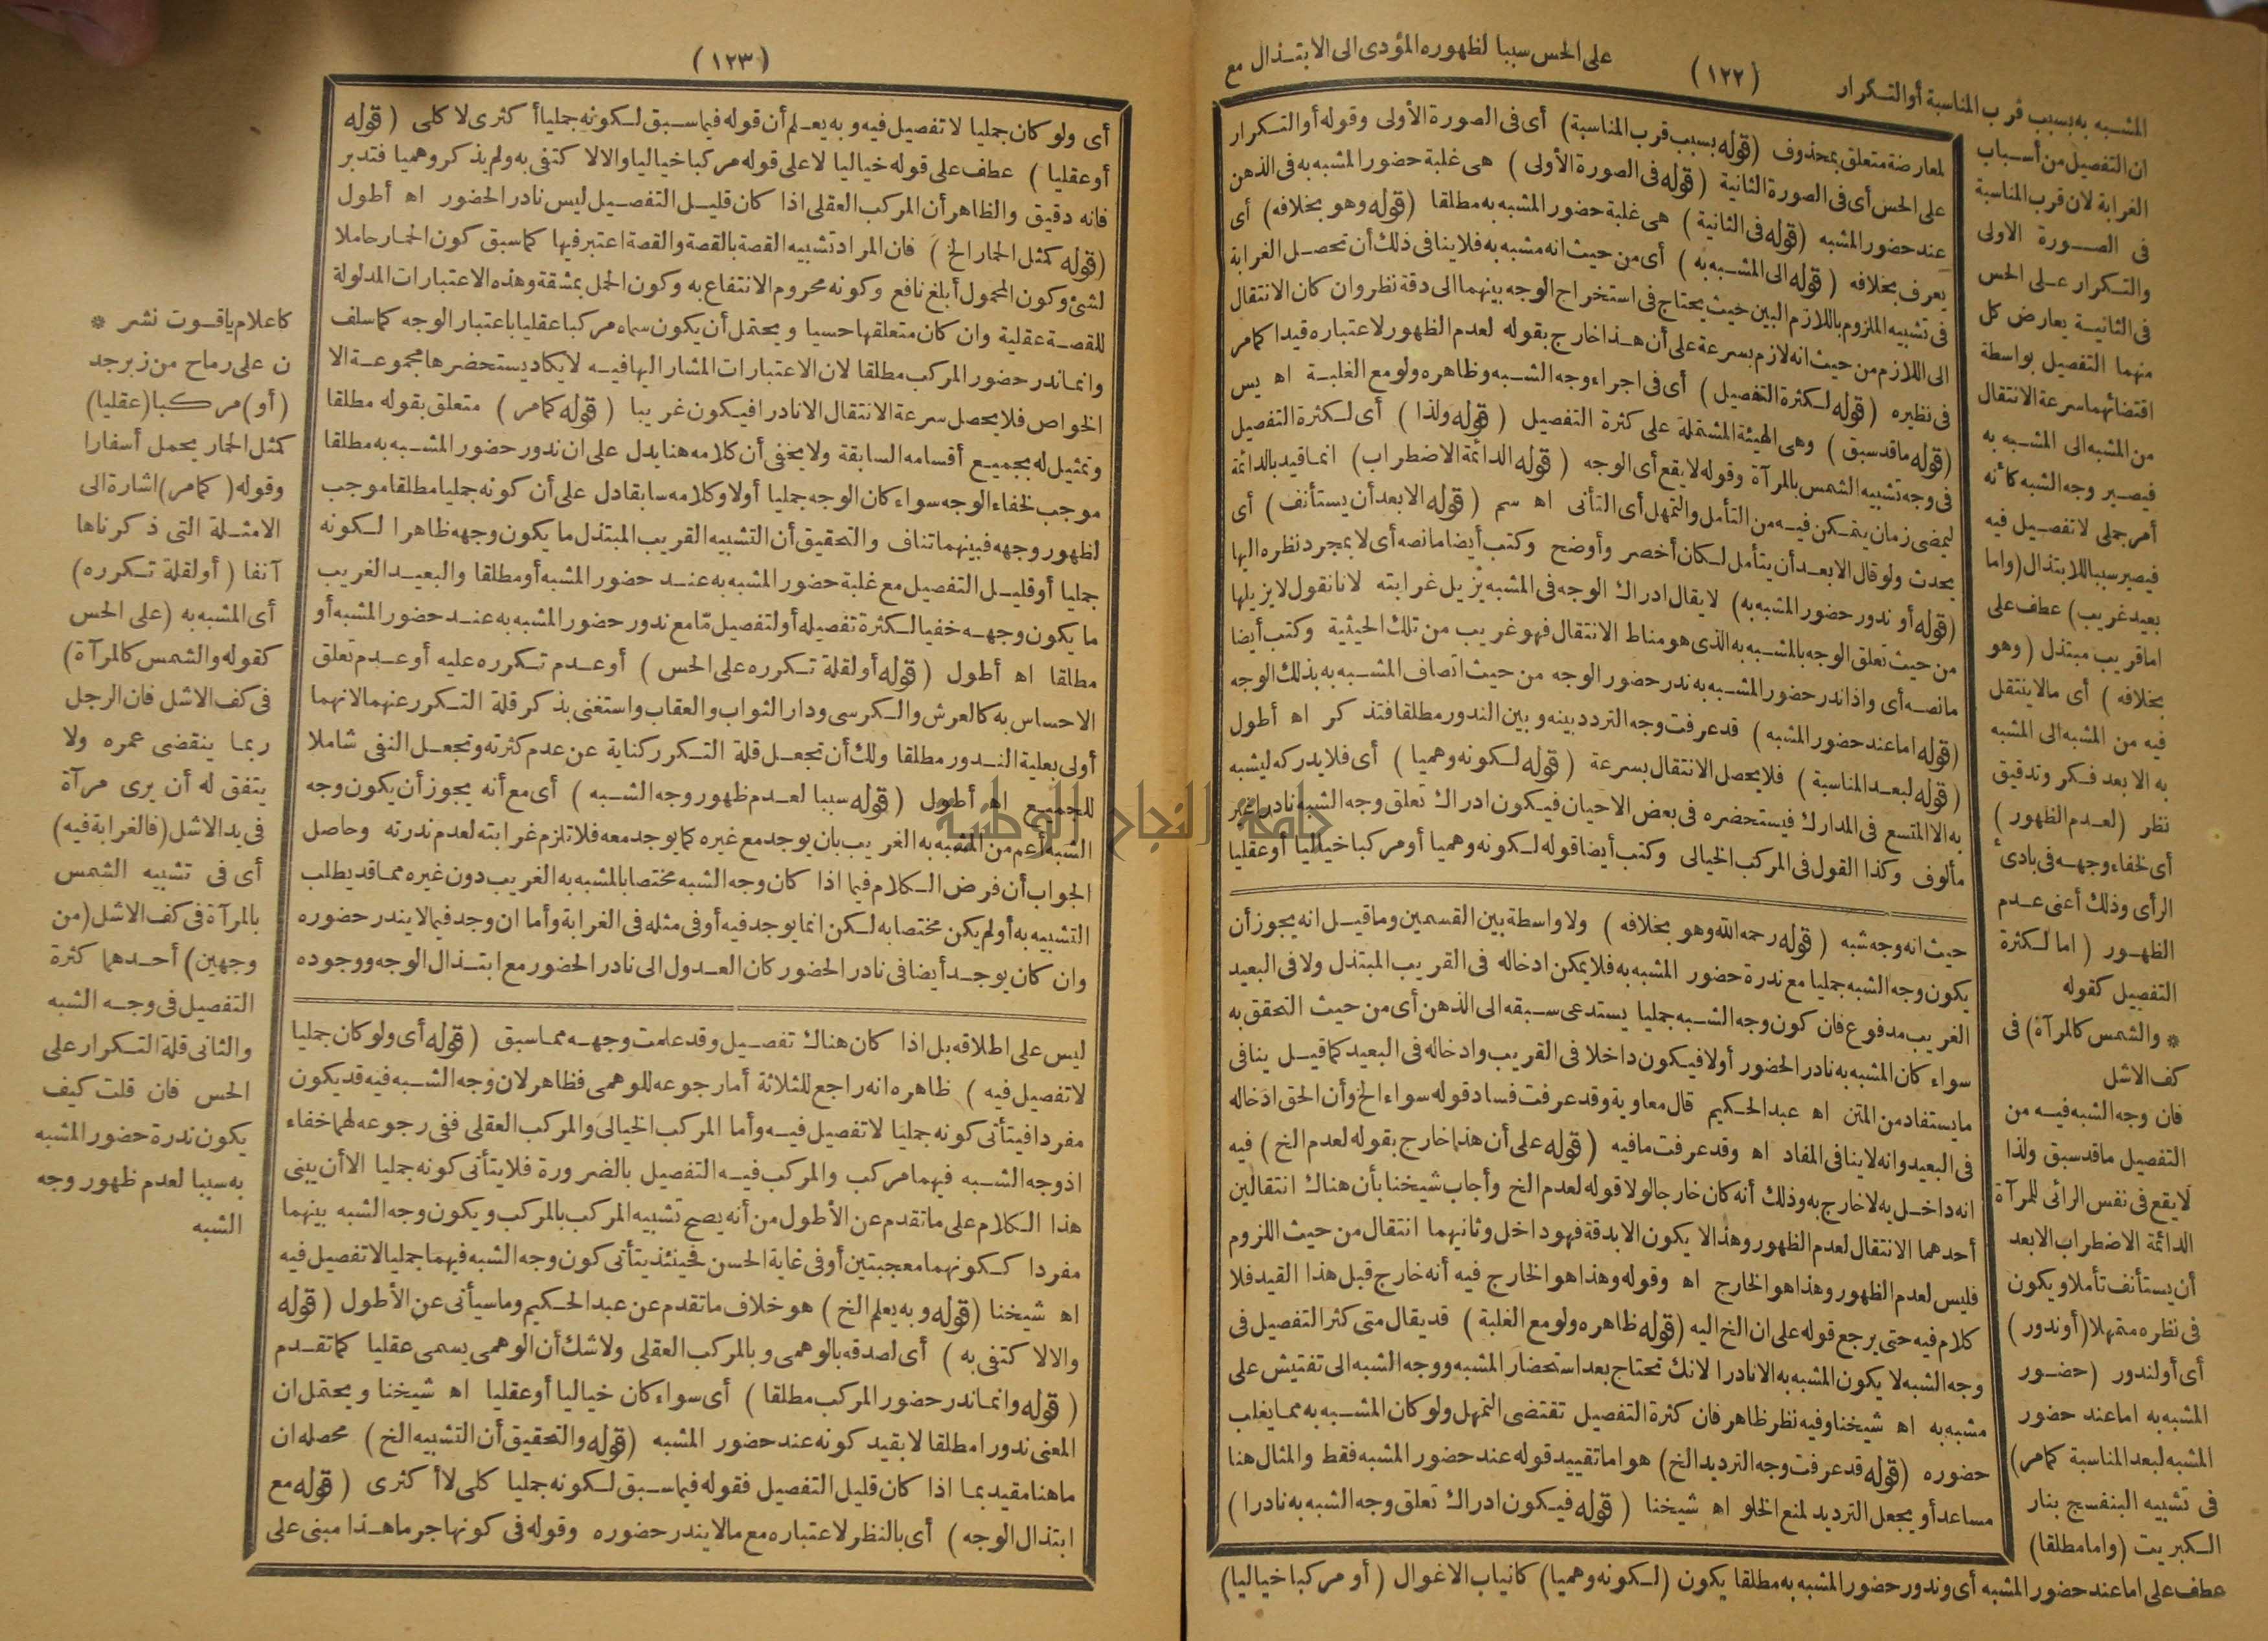 (١٢٢)
المشبه به بسبب قرب المناسبة أو التكرار
على الحس سببا لظهوره المؤدى الى الابتذال مع
ان التفصيل من أسباب
الغرابة لان قرب المناسبة
فى الصورة الاولى
والتكرار على الحس
فى الثانية يعارض كل
منهما التفصيل بواسطة
اقتضائهما سرعة الانتقال
من المشبه الى المشبه به
فيصير وجه الشبه كأنه
أمر جملى لا تفصيل فيه
فيصير سببا للابتذال (واما
بعيد غريب) عطف على
اما قريب مبتذل (وهو
بخلافه) أى مالا ينتقل
فيه من المشبه الى المشبه
به الا بعد فكر وتدقيق
نظر (لعدم الظهور)
أى لخفاء وجهه فى بادئ
الرأى وذلك أعنى عدم
الظهور (اما لكثرة
التفصيل كقوله
* والشمس كالمرآة) فى
كف الاشل
فان وجه الشبه فيه من
التفصيل ماقد سبق ولذا
لا يقع فى نفس الرائى للمرآة
الدائمة الاضطراب الا بعد
أن يستأنف تأملا ويكون
فى نظره متمهلا (أو ندور)
أى أو لندور (حضور
المشبه به اما عند حضور
المشبه لبعد المناسبة كمامر)
فى تشبيه البنفسج بنار
الكبريت (واما مطلقا)
عطف على اما عند حضور المشبه أى وندور حضور المشبه به مطلقا يكون (لكونه وهميا) كانياب الاغوال (أو مركبا خياليا)
لمعارضة متعلق بمحذوف (قوله بسبب قرب المناسبة) أى فى الصورة الأولى وقوله أو التكرار
على الحس أى فى الصورة الثانية (قوله فى الصورة الأولى) هى غلبة حضور المشبه به فى الذهن
عند حضور المشبه (قوله فى الثانية) هى غلبة حضور المشبه به مطلقا (قوله وهو بخلافه) أى
يعرف بخلافه (قوله الى المشبه به) أى من حيث انه مشبه به فلا ينافى ذلك أن تحصل الغرابة
فى تشبيه الملزوم باللازم البين حيث يحتاج فى استخراج الوجه بينهما الى دقة نظر وان كان الانتقال
الى اللازم من حيث انه لازم بسرعة على أن هذا خارج بقوله لعدم الظهور لاعتباره قيدا كمامر
فى نظيره (قوله لكثرة التفصيل) أى فى اجراء وجه الشبه وظاهره ولو مع الغلبة اه يس
(قوله ماقد سبق) وهى الهيئة المشتملة على كثرة التفصيل (قوله ولذا) أى لكثرة التفصيل
فى وجه تشبيه الشمس بالمرآة وقوله لا يقع أى الوجه (قوله الدائمة الاضطراب) انما قيد بالدائمة
ليمضى زمان يتمكن فيه من التأمل والتمهل أى التأنى اه سم (قوله الا بعد أن يستأنف) أى
يحدث ولو قال الا بعد أن يتأمل لكان أخصر وأوضح وكتب أيضا مانصه أى لا بمجرد نظره اليها
(قوله أو ندور حضور المشبه به) لا يقال ادراك الوجه فى المشبه يزيل غرابته لانا نقول لا يزيلها
من حيث تعلق الوجه بالمشبه به الذى هو مناط الانتقال فهو غريب من تلك الحيثية وكتب أيضا
مانصه أى واذا ندر حضور المشبه به ندر حضور الوجه من حيث اتصاف المشبه به بذلك الوجه
(قوله اما عند حضور المشبه) قد عرفت وجه التردد بينه وبين الندور مطلقا فتذكر اه أطول
(قوله لبعد المناسبة) فلا يحصل الانتقال بسرعة (قوله لكونه وهميا) أى فلا يدركه ليشبه
به الا المتسع فى المدارك فيستحضره فى بعض الاحيان فيكون ادراك تعلق وجه الشبه نادرا غير
مألوف وكذا القول فى المركب الخيالى وكتب أيضا قوله لكونه وهميا أو مركبا خياليا أو عقليا
حيث انه وجه شبه (قوله رحمه الله وهو بخلافه) ولا واسطة بين القسمين وما قيل انه يجوز أن
يكون وجه الشبه جمليا مع ندرة حضور المشبه به فلا يمكن ادخاله فى القريب المبتذل ولا فى البعيد
الغريب مدفوع فان كون وجه الشبه جمليا يستدعى سبقه الى الذهن أى من حيث التحقق به
سواء كان المشبه به نادر الحضور أولا فيكون داخلا فى القريب وادخاله فى البعيد كما قيل ينافى
ما يستفاد من المتن اه عبد الحكيم قال معاوية وقد عرفت فساد قوله سواء الخ وأن الحق ادخاله
فى البعيد وانه لا ينافى المفاد اه وقد عرفت مافيه (قوله على أن هذا خارج بقوله لعدم الخ) فيه
انه داخل به لا خارج به وذلك أنه كان خارجا لولا قوله لعدم الخ وأجاب شيخنا بأن هناك انتقالين
أحدهما الانتقال لعدم الظهور وهذا لا يكون الا بدقة فهو داخل وثانيهما انتقال من حيث اللزوم
فليس لعدم الظهور وهذا هو الخارج اه وقوله وهذا هو الخارج فيه أنه خارج قبل هذا القيد فلا
كلام فيه حتى يرجع قوله على ان الخ اليه (قوله ظاهره ولو مع الغلبة) قد يقال متى كثر التفصيل فى
وجه الشبه لا يكون المشبه به الا نادرا لانك تحتاج بعد استحضار المشبه ووجه الشبه الى تفتيش على
مشبه به اه شيخنا وفيه نظر ظاهر فان كثرة التفصيل تقتضى التمهل ولو كان المشبه به مما يغلب
حضوره (قوله قد عرفت وجه الترديد الخ) هو اما تقييد قوله عند حضور المشبه فقط والمثال هنا
مساعد أو يجعل الترديد لمنع الخلو اه شيخنا (قوله فيكون ادراك تعلق وجه الشبه به نادرا)
(١٢٣)
أى ولو كان جمليا لا تفصيل فيه وبه يعلم أن قوله فيما سبق لكونه جمليا أكثرى لا كلى (قوله
أو عقليا) عطف على قوله خياليا لا على قوله مركبا خياليا والا لا كتفى به ولم يذكر وهميا فتدبر
فانه دقيق والظاهر أن المركب العقلى اذا كان قليل التفصيل ليس نادر الحضور اه أطول
(قوله كمثل الحمار الخ) فان المراد تشبيه القصة بالقصة والقصة اعتبر فيها كما سبق كون الحمار حاملا
لشئ وكون المحمول أبلغ نافع وكونه محروم الانتفاع به وكون الحمل بمشقة وهذه الاعتبارات المدلولة
للقصة عقلية وان كان متعلقها حسيا ويحتمل أن يكون سماه مركبا عقليا باعتبار الوجه كما سلف
وانما ندر حضور المركب مطلقا لان الاعتبارات المشار اليها فيه لا يكاد يستحضرها مجموعة الا
الخواص فلا يحصل سرعة الانتقال الا نادرا فيكون غريبا (قوله كمامر) متعلق بقوله مطلقا
وتمثيل له بجميع أقسامه السابقة ولا يخفى أن كلامه هنا يدل على ان ندور حضور المشبه به مطلقا
موجب لخفاء الوجه سواء كان الوجه جمليا أولا وكلامه سابقا دل على أن كونه جمليا مطلقا موجب
لظهور وجهه فبينهما تناف والتحقيق أن التشبيه القريب المبتذل ما يكون وجهه ظاهرا لكونه
جمليا أو قليل التفصيل مع غلبة حضور المشبه به عند حضور المشبه أو مطلقا والبعيد الغريب
ما يكون وجهه خفيا لكثرة تفصيله أو لتفصيل مّا مع ندور حضور المشبه به عند حضور المشبه أو
مطلقا اه أطول (قوله أو لقلة تكرره على الحس) أو عدم تكرره عليه أو عدم تعلق
الاحساس به كالعرش والكرسى ودار الثواب والعقاب واستغنى بذكر قلة التكرر عنهما لانهما
أولى بعلية الندور مطلقا ولك أن تجعل قلة التكرر كناية عن عدم كثرته وتجعل النفى شاملا
للجميع اه أطول (قوله سببا لعدم ظهور وجه الشبه) أى مع أنه يجوز أن يكون وجه
الشبه أعم من المشبه به الغريب بان يوجد مع غيره كما يوجد معه فلا تلزم غرابته لعدم ندرته وحاصل
الجواب أن فرض الكلام فيما اذا كان وجه الشبه مختصا بالمشبه به الغريب دون غيره مما قد يطلب
التشبيه به أو لم يكن مختصا به لكن انما يوجد فيه أو فى مثله فى الغرابة وأما ان وجد فيما لا يندر حضوره
وان كان يوجد أيضا فى نادر الحضور كان العدول الى نادر الحضور مع ابتذال الوجه ووجوده
ليس على اطلاقه بل اذا كان هناك تفصيل وقد علمت وجهه مما سبق (قوله أى ولو كان جمليا
لا تفصيل فيه) ظاهره انه راجع للثلاثة أما رجوعه للوهمى فظاهر لان وجه الشبه فيه قد يكون
مفردا فيتأتى كونه جمليا لا تفصيل فيه وأما المركب الخيالى والمركب العقلى ففى رجوعه لهما خفاء
اذ وجه الشبه فيهما مركب والمركب فيه التفصيل بالضرورة فلا يتأتى كونه جمليا الا أن يبنى
هذا الكلام على ما تقدم عن الأطول من أنه يصح تشبيه المركب بالمركب ويكون وجه الشبه بينهما
مفردا ككونهما معجبتين أو فى غاية الحسن فحينئذ يتأتى كون وجه الشبه فيهما جمليا لا تفصيل فيه
اه شيخنا (قوله وبه يعلم الخ) هو خلاف ما تقدم عن عبد الحكيم وما سيأتى عن الأطول (قوله
والا لا كتفى به) أى لصدقه بالوهمى وبالمركب العقلى ولا شك أن الوهمى يسمى عقليا كما تقدم
(قوله وانما ندر حضور المركب مطلقا) أى سواء كان خياليا أو عقليا اه شيخنا ويحتمل ان
المعنى ندورا مطلقا لا بقيد كونه عند حضور المشبه (قوله والتحقيق أن التشبيه الخ) محصله ان
ماهنا مقيد بما اذا كان قليل التفصيل فقوله فيما سبق لكونه جمليا كلى لا أكثرى (قوله مع
ابتذال الوجه) أى بالنظر لاعتباره مع مالا يندر حضوره وقوله فى كونها جر ماهذا مبنى على
كاعلام ياقوت نشر *
ن على رماح من زبرجد
(أو) مركبا (عقليا)
كمثل الحمار يحمل أسفارا
وقوله (كمامر) اشارة الى
الامثلة التى ذكرناها
آنفا (أو لقلة تكرره)
أى المشبه به (على الحس
كقوله والشمس كالمرآة)
فى كف الاشل فان الرجل
ربما ينقضى عمره ولا
يتفق له أن يرى مرآة
فى يد الاشل (فالغرابة فيه)
أى فى تشبيه الشمس
بالمرآة فى كف الاشل (من
وجهين) أحدهما كثرة
التفصيل فى وجه الشبه
والثانى قلة التكرار على
الحس فان قلت كيف
يكون ندرة حضور المشبه
به سببا لعدم ظهور وجه
الشبه
جامعة النجاح الوطنية